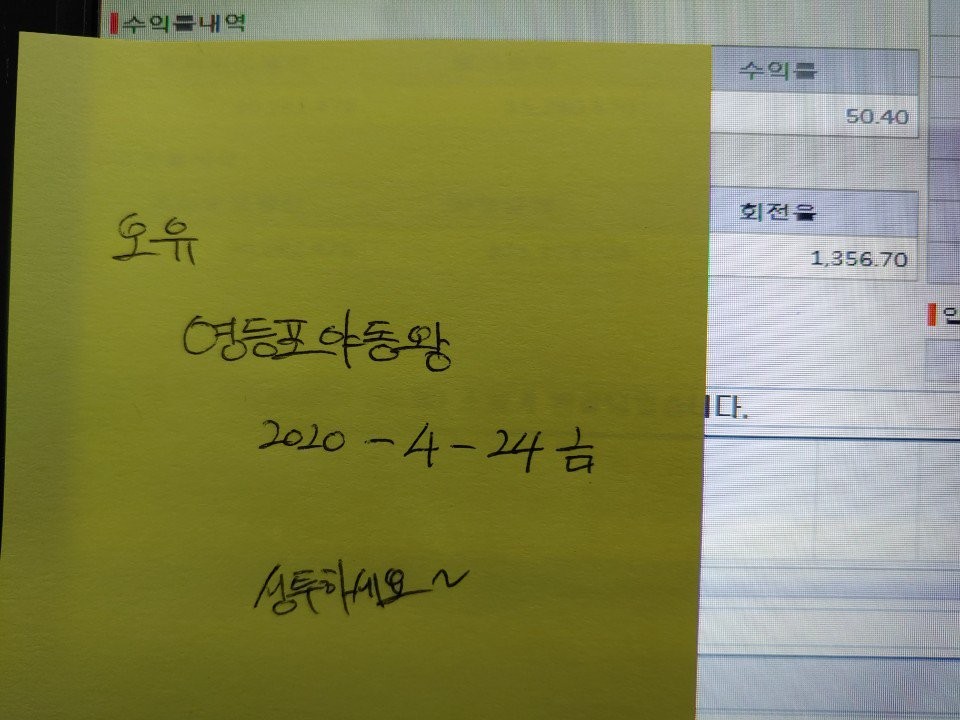 수익률내역
수익률
50.40
회전율
1,356.70
니다.
오유
영등포야동왕
2020 - 4 - 24 금
성투하세요~